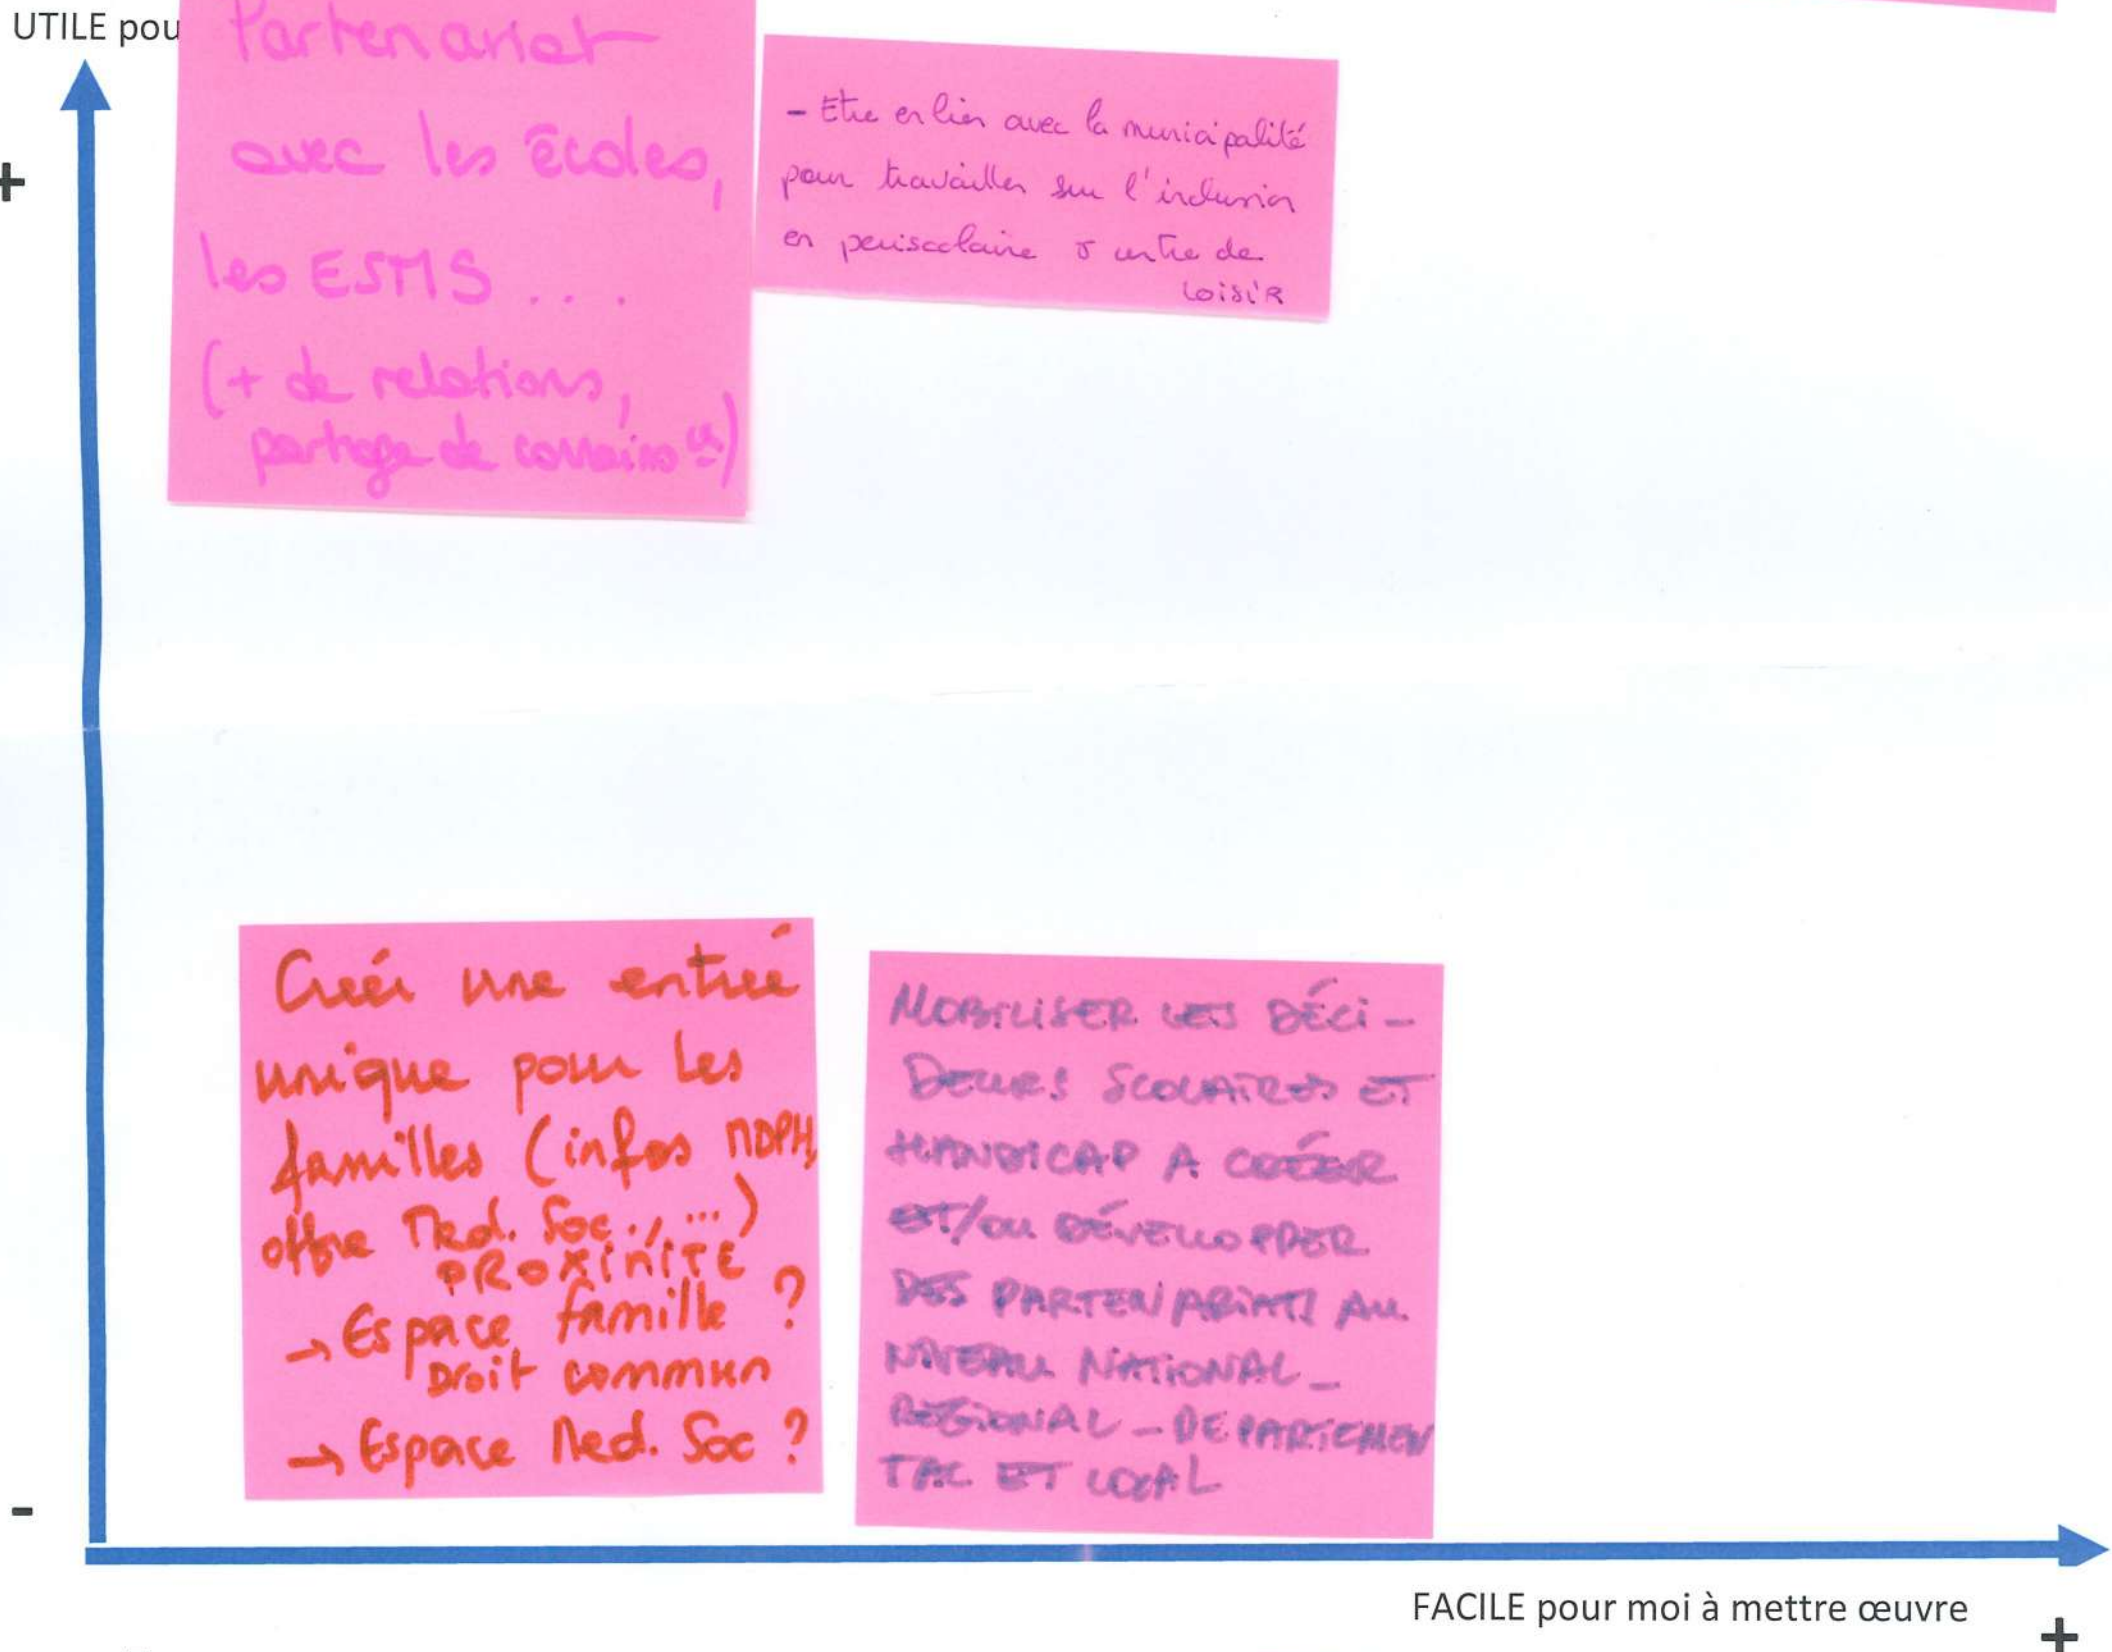 UTILE pou
+
Partenariat
avec les écoles,
les ESMS ...
(+ de relations,
partage de connaiss ces)
- Etre en lien avec la municipalité
pour travailler sur l'inclusion
en periscolaire & centre de
LOISIR
Créer une entrée
unique pour les
familles (infos MDPH,
offre Med. Soc., ...)
PROXIMITE
→ Espace famille ?
Droit commun
→ Espace Med. Soc ?
MOBILISER LES DÉCI-
DEURS SCOLAIRES ET
HANDICAP A CRÉER
ET/OU DÉVELLOPPER
DES PARTENARIATS AU
NIVEAU NATIONAL_
REGIONAL_DEPARTEMEN
TAL ET LOCAL
-
FACILE pour moi à mettre œuvre
+